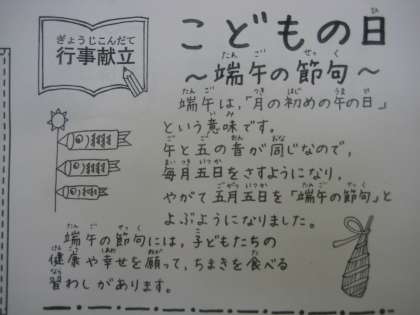 行事献立
こどもの日
～端午の節句～
端午は、「月の初めの午の日」
という意味です。
午と五の音が同じなので、
毎月五日をさすようになり、
やがて五月五日を「端午の節句」と
よぶようになりました。
端午の節句には、子どもたちの
健康や幸せを願って、ちまきを食べる
習わしがあります。